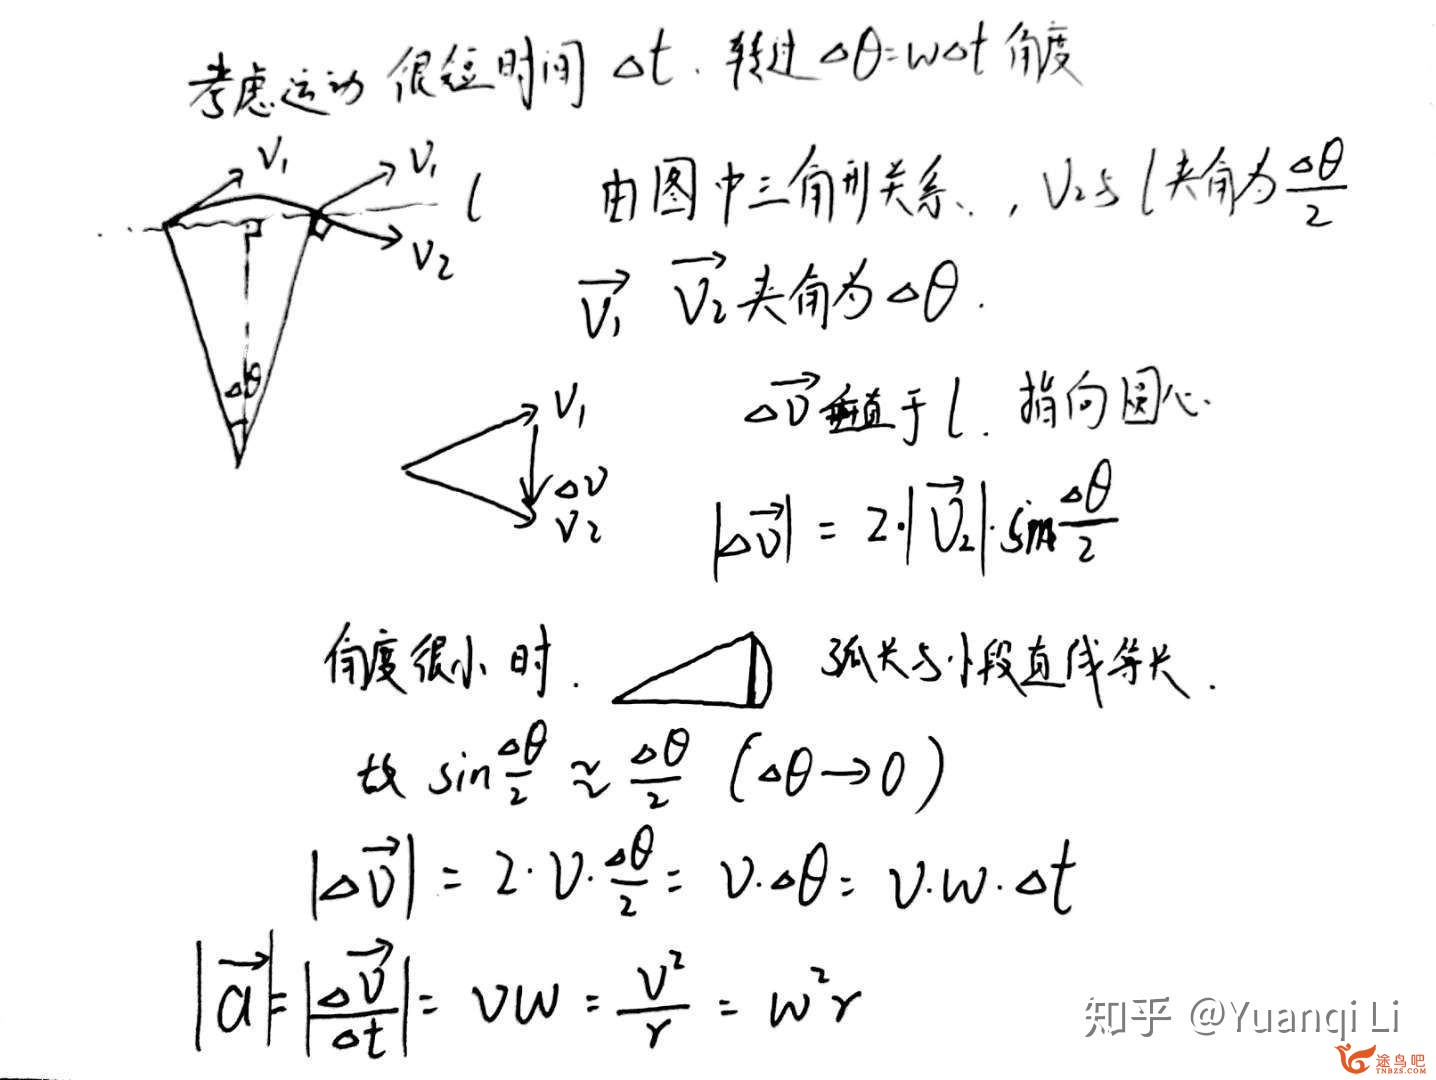 考虑运动很短时间 Δt. 转过 Δθ=wΔt 角度
V₁ V₁ l V₂ Δθ
由图中三角形关系, V₂与l夹角为 Δθ/2
\vec{V₁} \vec{V₂} 夹角为Δθ.
V₁ ΔV V₂
Δ\vec{V} 垂直于 l. 指向圆心.
|Δ\vec{V}| = 2·|\vec{V₂}|·sin Δθ/2
角度很小时. 弧长与小段直线等长.
故 sin Δθ/2 ≈ Δθ/2 (Δθ→0)
|Δ\vec{V}| = 2·V·Δθ/2 = V·Δθ = V·w·Δt
|\vec{a}| = |Δ\vec{V}/Δt| = Vw = V²/r = w²r
知乎 @Yuanqi Li
途鸟吧
TNBZS.COM